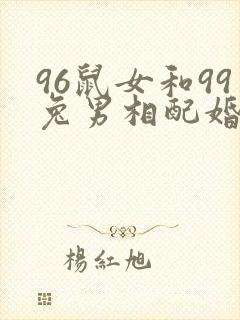 96鼠女和99
兔男相配婚
楊紅旭